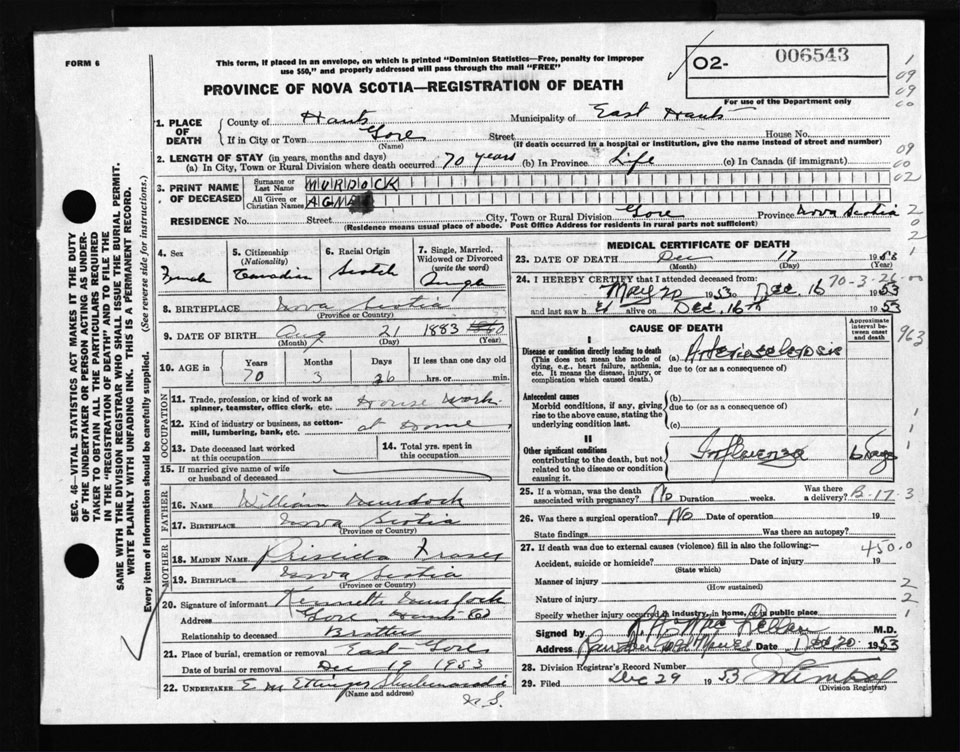 FORM 6
This form, if placed in an envelope, on which is printed "Dominion Statistics—Free, penalty for improper
use $50," and properly addressed will pass through the mail "FREE"
O2- 006543
For use of the Department only
PROVINCE OF NOVA SCOTIA—REGISTRATION OF DEATH
1. PLACE OF DEATH County of Hants Municipality of East Hants
If in City or Town Gore Street House No.
(Name) (If death occurred in a hospital or institution, give the name instead of street and number)
2. LENGTH OF STAY (in years, months and days)
(a) In City, Town or Rural Division where death occurred 70 years (b) In Province Life (c) In Canada (if immigrant)
3. PRINT NAME OF DECEASED Surname or Last Name MURDOCK
All Given or Christian Names
RESIDENCE No. Street City, Town or Rural Division Gore Province Nova Scotia
(Residence means usual place of abode. Post Office Address for residents in rural parts not sufficient)
4. Sex
5. Citizenship (Nationality) Canadian
6. Racial Origin Scotch
7. Single, Married, Widowed or Divorced (write the word) Single
8. BIRTHPLACE Nova Scotia
(Province or Country)
9. DATE OF BIRTH Aug 21 1883
(Month) (Day) (Year)
10. AGE in Years Months Days If less than one day old
70 3 26 hrs. or min.
OCCUPATION
11. Trade, profession, or kind of work as spinner, teamster, office clerk, etc. House Work
12. Kind of industry or business, as cotton-mill, lumbering, bank, etc. at Home
13. Date deceased last worked at this occupation
14. Total yrs. spent in this occupation
15. If married give name of wife or husband of deceased
FATHER
16. NAME William Murdock
17. BIRTHPLACE Nova Scotia
(Province or Country)
MOTHER
18. MAIDEN NAME Priscilda Fraser
19. BIRTHPLACE Nova Scotia
(Province or Country)
20. Signature of informant Kenneth Murdock
Address Gore Hants Co
Relationship to deceased Brother
21. Place of burial, cremation or removal East Gore
Date of burial or removal Dec 19 1953
22. UNDERTAKER E M Ettinger Shubenacadie
(Name and address) N.S.
MEDICAL CERTIFICATE OF DEATH
23. DATE OF DEATH Dec 17 19
(Month) (Day) (Year)
24. I HEREBY CERTIFY that I attended deceased from:
May 20 1953 to Dec. 16 1953
70-3-26
and last saw h alive on Dec. 16th 1953
CAUSE OF DEATH
Approximate interval between onset and death
I
Disease or condition directly leading to death (a)
(This does not mean the mode of dying, e.g., heart failure, asthenia, etc. It means the disease, injury, or complication which caused death.)
due to (or as a consequence of)
Antecedent causes
Morbid conditions, if any, giving rise to the above cause, stating the underlying condition last.
(b)
due to (or as a consequence of)
(c)
II
Other significant conditions Influenza
contributing to the death, but not related to the disease or condition causing it.
25. If a woman, was the death associated with pregnancy? No Duration weeks. Was there a delivery?
26. Was there a surgical operation? No Date of operation 19
State findings Was there an autopsy?
27. If death was due to external causes (violence) fill in also the following: 450.0
Accident, suicide or homicide? Date of injury 19
(State which)
Manner of injury
(How sustained)
Nature of injury
Specify whether injury occurred in industry, in home, or in public place
Signed by M.D.
Address Date Dec 20 1953
28. Division Registrar's Record Number
29. Filed Dec 29 1953
(Division Registrar)
SEC. 46—VITAL STATISTICS ACT MAKES IT THE DUTY
OF THE UNDERTAKER OR PERSON ACTING AS UNDER-
TAKER TO OBTAIN ALL THE PARTICULARS REQUIRED
IN THE "REGISTRATION OF DEATH" AND TO FILE THE
SAME WITH THE DIVISION REGISTRAR WHO SHALL ISSUE THE BURIAL PERMIT.
WRITE PLAINLY WITH UNFADING INK. THIS IS A PERMANENT RECORD.
Every item of information should be carefully supplied. (See reverse side for instructions.)
1
09
09
00
09
00
02
963